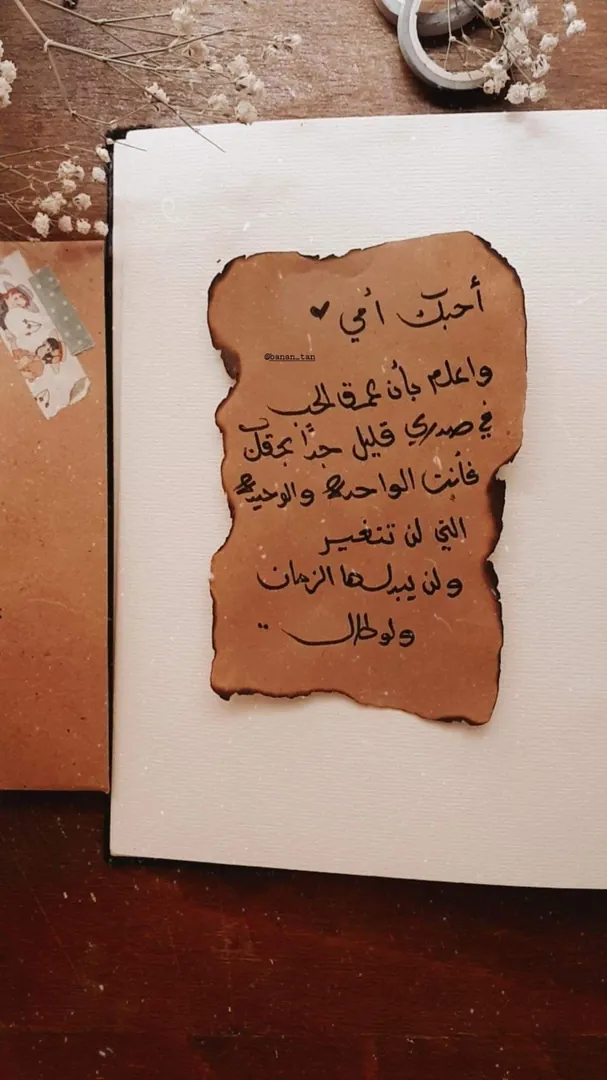 أحبك أمي ♥
@banan_tan
واعلم بأن عمق الحب
في صدري قليل جدًا بحقك
فأنت الواحدة والوحيدة
التي لن تتغير
ولن يبدلها الزمان
ولو طال ..